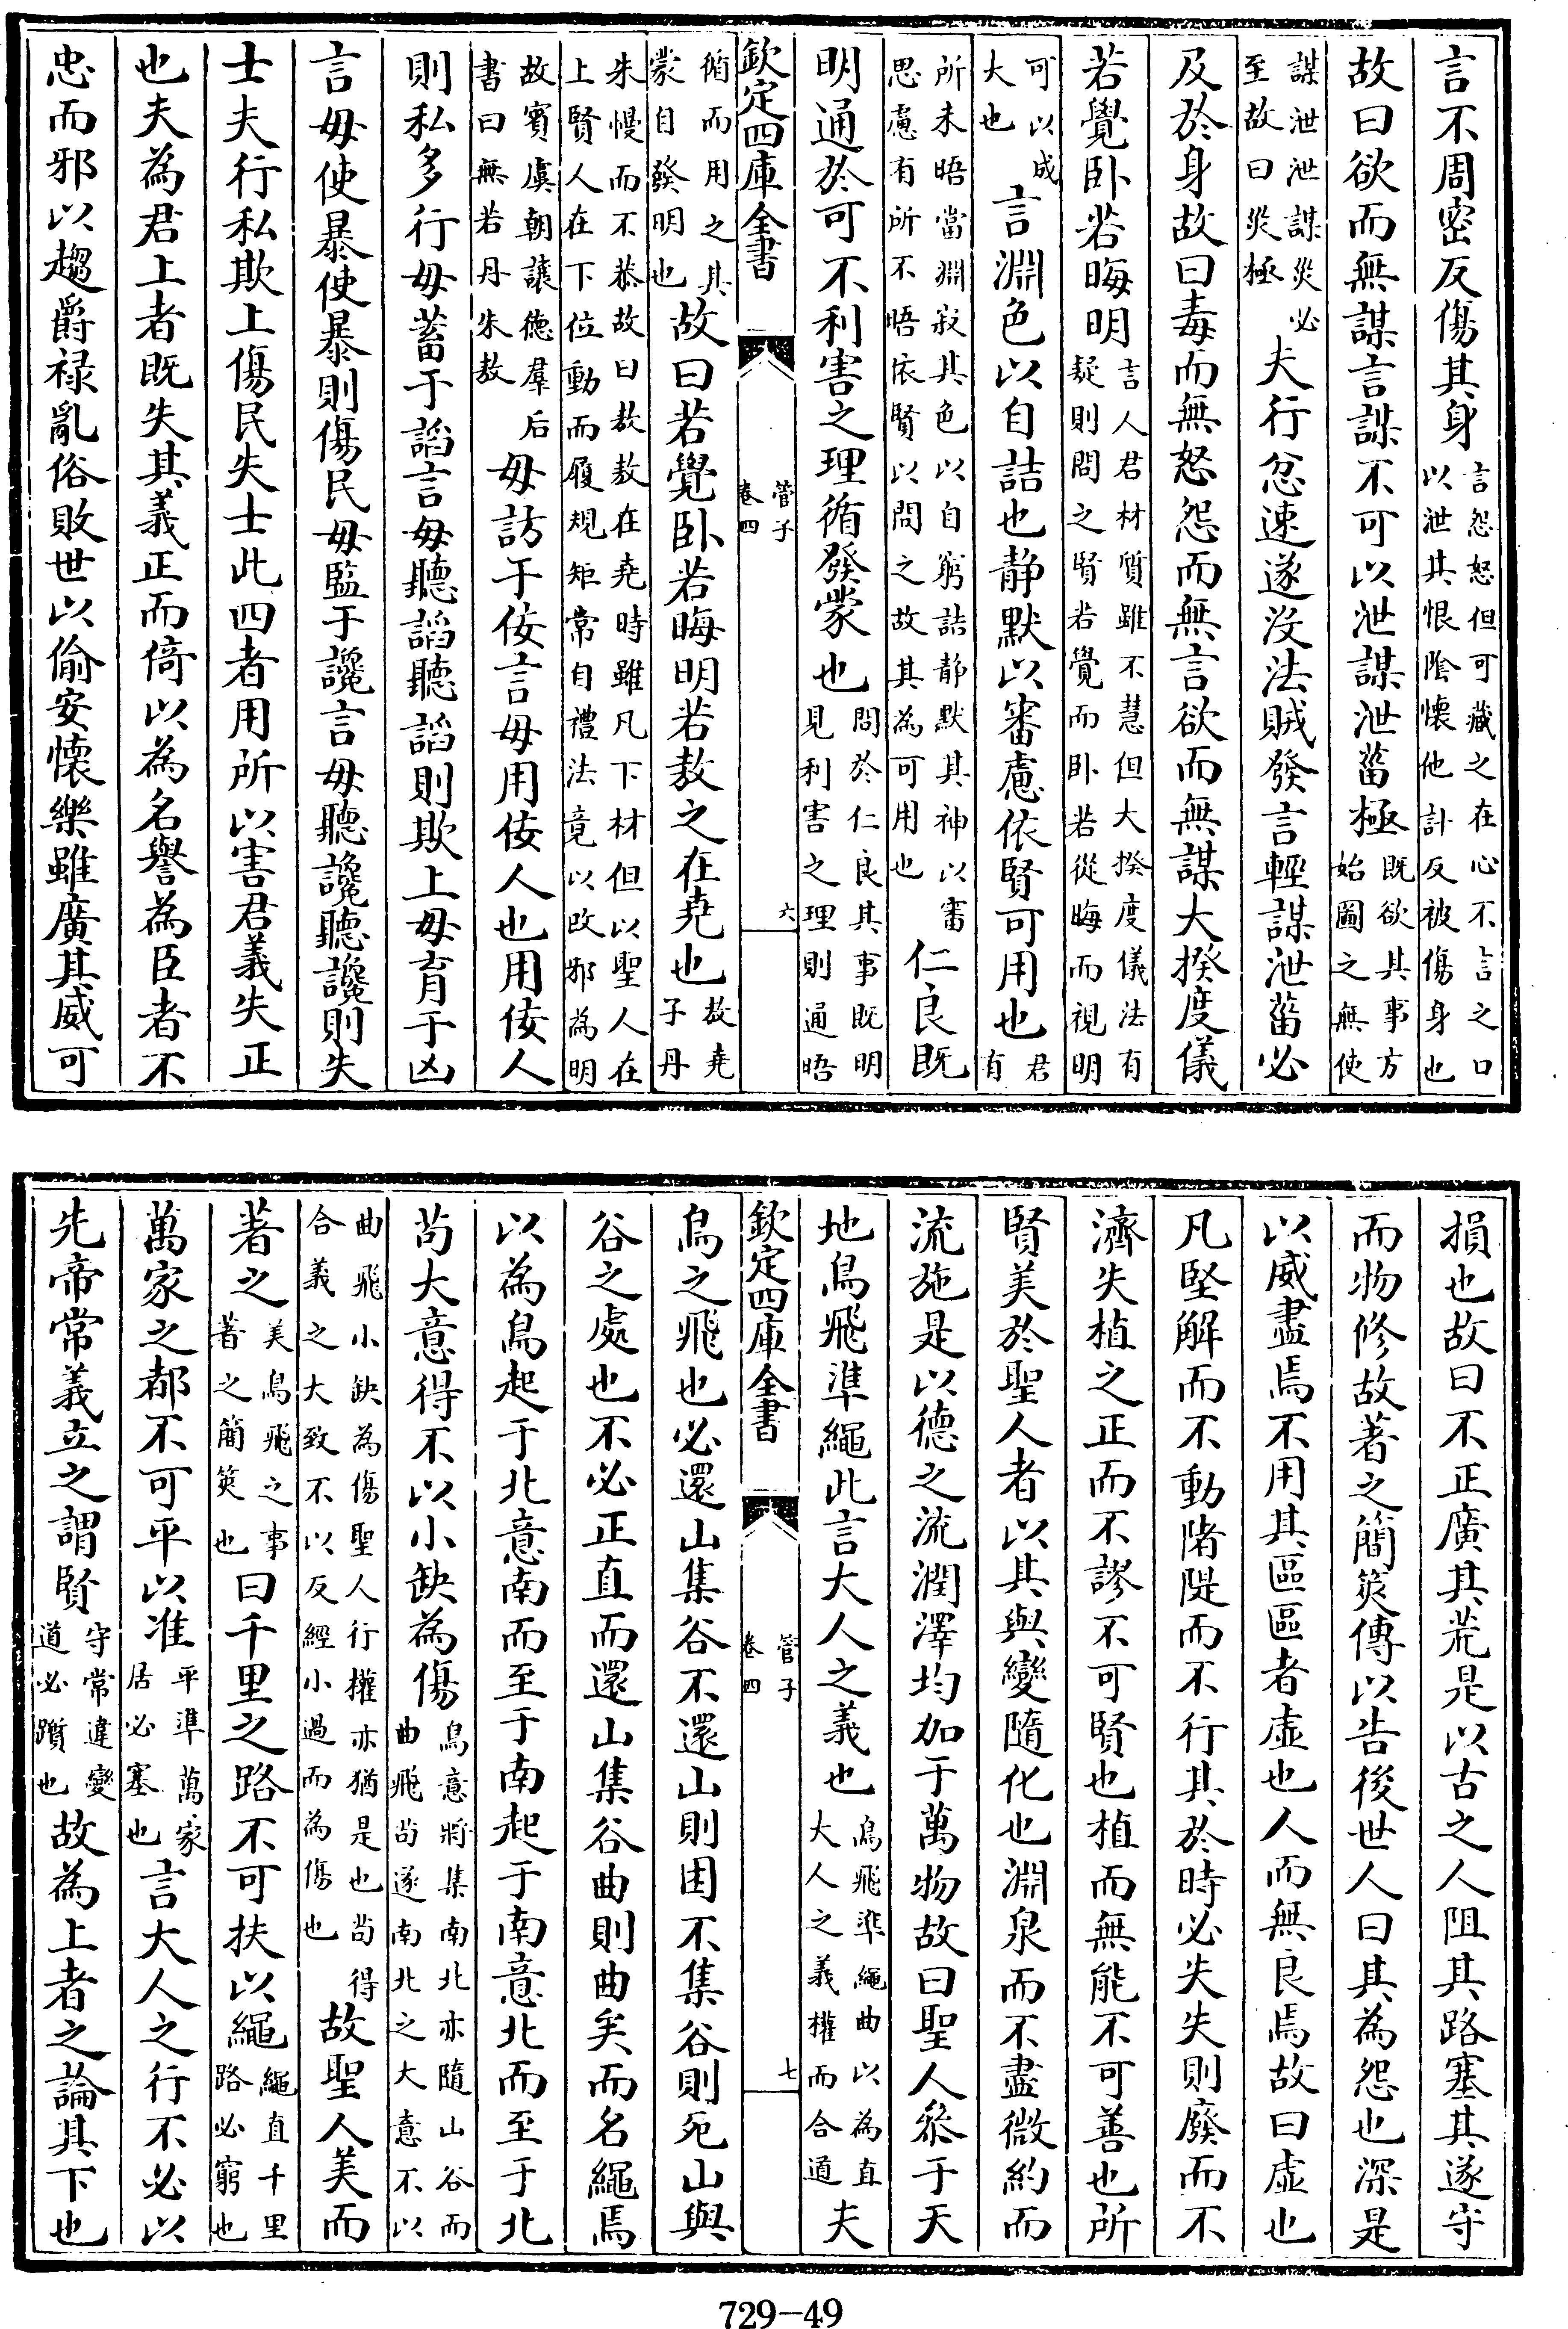 言不周密反傷其身言怨怒但可藏之在心不言之口以泄其恨陰懷他計反被傷身也
故曰欲而無謀言謀不可以泄謀泄菑極既欲其事方始圖之無使
謀泄泄謀災必至故曰災極夫行忿速遂沒法賊發言輕謀泄菑必
及於身故曰毒而無怒怨而無言欲而無謀大揆度儀
若覺卧若晦明言人君材質雖不慧但大揆度儀法有疑則問之賢若覺而卧若從晦而視明
可以成大也言淵色以自詰也静默以審慮依賢可用也君有
所未晤當淵寂其色以自窮詰静默其神以審思慮有所不晤依賢以問之故其為可用也仁良既
明通於可不利害之理循發蒙也問於仁良其事既明見利害之理則通晤
欽定四庫全書 管子 卷四 六
循而用之其蒙自發明也故曰若覺卧若晦明若敖之在堯也敖堯子丹
朱慢而不恭故曰敖敖在堯時雖凡下材但以聖人在上賢人在下位動而履規矩常自禮法竟以改邪為明
故賓虞朝讓德羣后書曰無若丹朱敖毋訪于佞言毋用佞人也用佞人
則私多行毋蓄于謟言毋聽謟聽謟則欺上毋育于凶
言毋使暴使暴則傷民毋監于讒言毋聽讒聽讒則失
士夫行私欺上傷民失士此四者用所以害君義失正
也夫為君上者既失其義正而倚以為名譽為臣者不
忠而邪以趨爵祿亂俗敗世以偷安懷樂雖廣其威可
損也故曰不正廣其荒是以古之人阻其路塞其遂守
而物修故著之簡筴傳以告後世人曰其為怨也深是
以威盡焉不用其區區者虛也人而無良焉故曰虛也
凡堅解而不動陼隄而不行其於時必失失則廢而不
濟失植之正而不謬不可賢也植而無能不可善也所
賢美於聖人者以其與變隨化也淵泉而不盡微約而
流施是以德之流潤澤均加于萬物故曰聖人叅于天
地鳥飛準繩此言大人之義也鳥飛準繩曲以為直大人之義權而合道夫
欽定四庫全書 管子 卷四 七
鳥之飛也必還山集谷不還山則困不集谷則死山與
谷之處也不必正直而還山集谷曲則曲矣而名繩焉
以為鳥起于北意南而至于南起于南意北而至于北
苟大意得不以小缺為傷鳥意將集南北亦隨山谷而曲飛苟遂南北之大意不以
曲飛小缺為傷聖人行權亦猶是也苟得合義之大致不以反經小過而為傷也故聖人美而
著之美鳥飛之事著之簡筴也曰千里之路不可扶以繩繩直千里路必窮也
萬家之都不可平以准平準萬家居必塞也言大人之行不必以
先帝常義立之謂賢守常違變道必躓也故為上者之論其下也
729-49